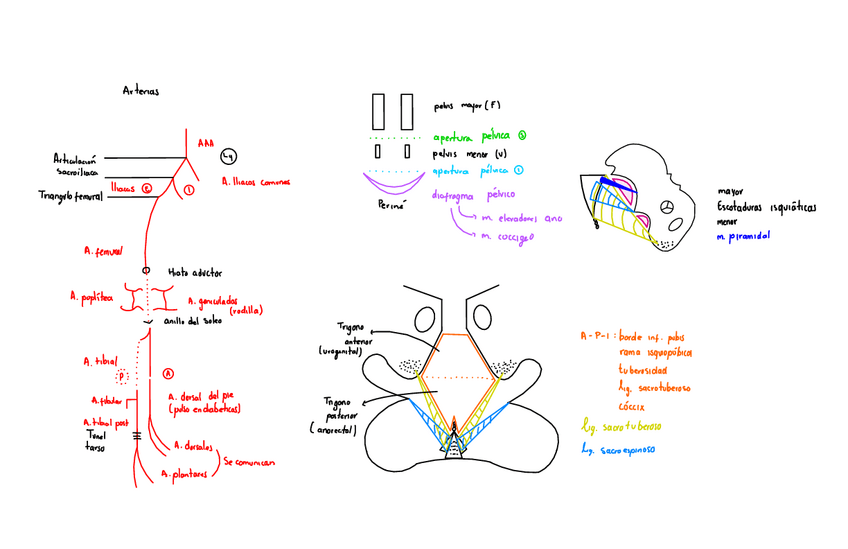 Arterias
AAA
L4
Articulación
sacroilíaca
A. Iliacas comunes
Iliacas E
I
Triangulo femural
A. femural
Hiato aductor
A. poplítea
A. geniculados
(rodilla)
anillo del soleo
A. tibial
P
A
A. dorsal del pie
(pulso en diabeticos)
A. tibial post
Tunel
tarso
A. dorsales
Se comunican
A. plantares
pelvis mayor (F)
apertura pélvica
pelvis menor (V)
apertura pélvica
diafragma pélvico
Periné
m. elevadores ano
m. coccigeo
mayor
Escotaduras isquiáticas
menor
m. piramidal
Trigono
anterior
(urogenital)
Trigono
posterior
(anorectal)
A-P-I: borde inf. pubis
rama isquiopúbica
tuberosidad
lig. sacrotuberoso
cóccix
Lig. sacrotuberoso
Lig. sacroespinoso